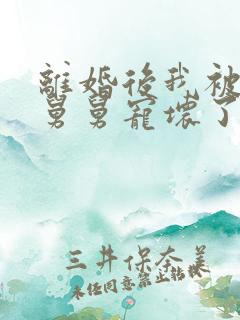 離婚後我被
舅舅寵壞了
三井保奈美
未经同意禁止转载